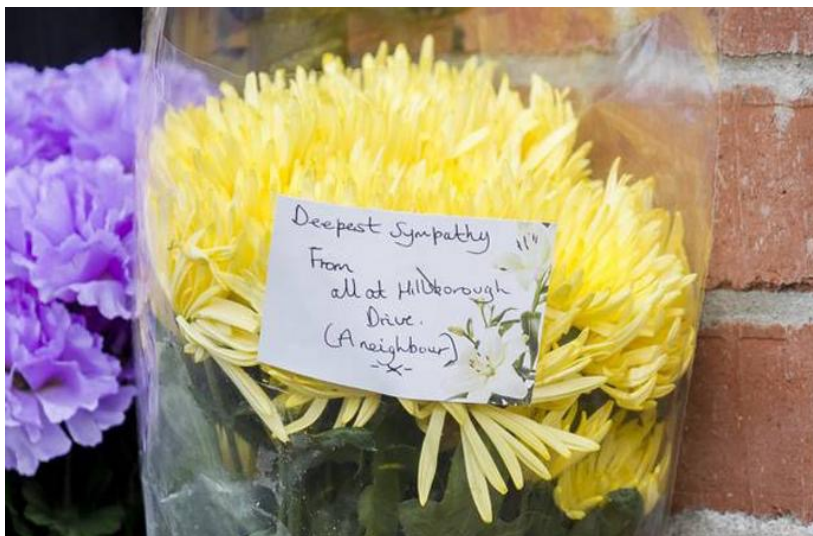 Deepest Sympathy
From
all at Hillborough
Drive.
(A neighbour)
-x-